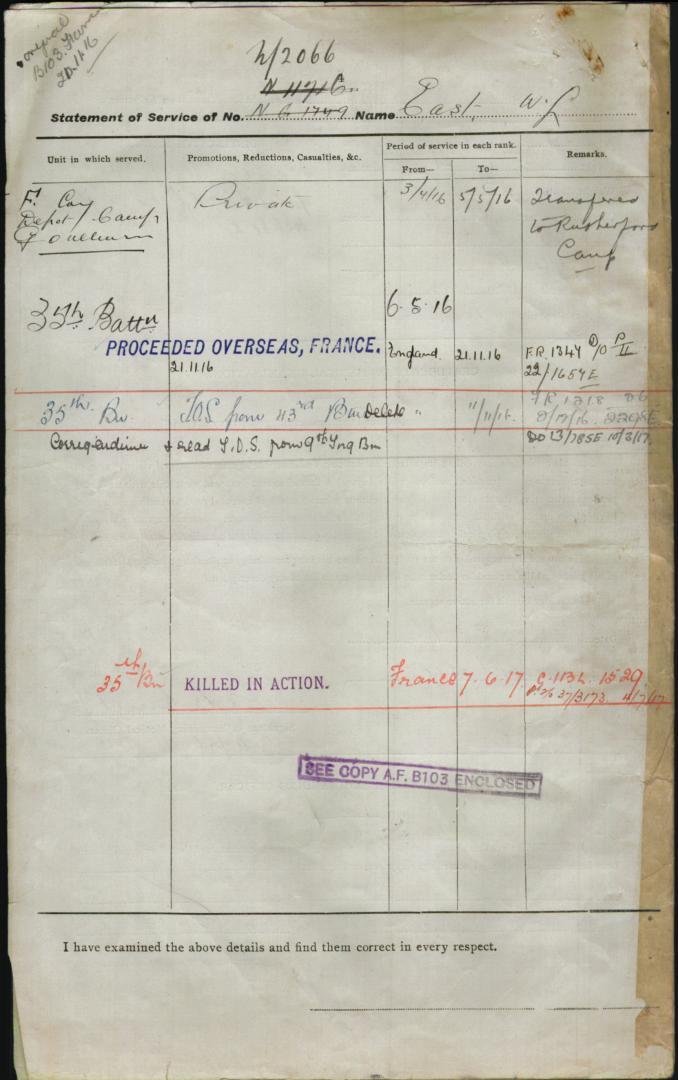 original
B103. France
20.11.16
2/2066
N 1171C
Statement of Service of No. N C 1749 Name East, W. J
Unit in which served. Promotions, Reductions, Casualties, &c. Period of service in each rank. Remarks.
From— To—
F. Coy Private 3/4/16 5/5/16 Transferred
Depot Camp to Rutherford
Goulburn Camp
35th Battn 6.5.16
PROCEEDED OVERSEAS, FRANCE. England. 21.11.16 F.R. 1347 D/O P II
21.11.16 22/1654E
35th Bn TOS from 43rd Bn Delete " 11/11/16.
Corrigendum & read T.O.S. from 9th Trng Bn DO 13/785E 10/3/17.
35th Bn KILLED IN ACTION. France 7.6.17. C.1132. 1529
37/3173. 11/7/17
SEE COPY A.F. B103 ENCLOSED
I have examined the above details and find them correct in every respect.